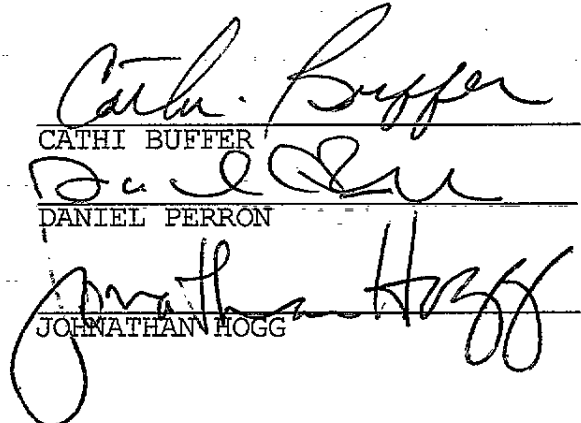 Cathi Buffer
CATHI BUFFER
Daniel Perron
DANIEL PERRON
Jonathan Hogg
JOHNATHAN HOGG